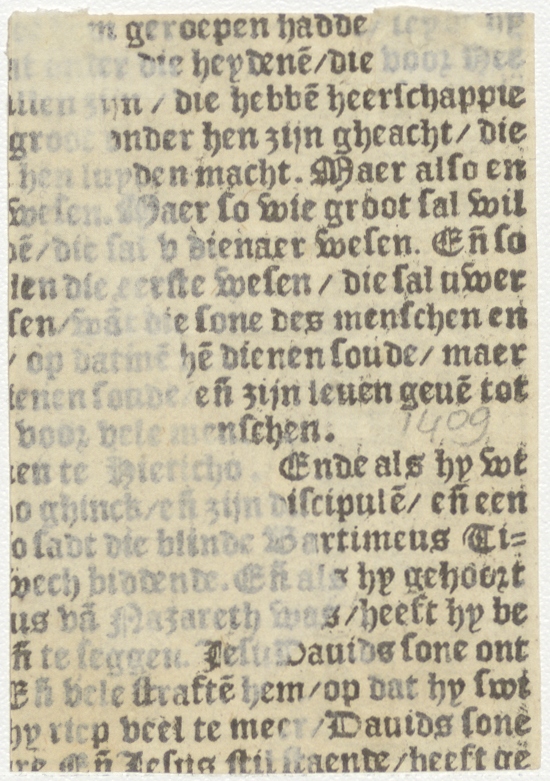 geroepen hadde
die heydenē/die voor
zijn / die hebbē heerschappie
groot onder hen zijn gheacht/ die
hen luyden macht. Maer also en
wesen. Maer so wie groot sal wil
die sal v dienaer wesen. Eñ so
die eerste wesen / die sal uwer
wāt die sone des menschen en
/ op datmē hē dienen soude/ maer
dienen soude/ eñ zijn leuen geuē tot
voor vele menschen.
1409
te Hiericho. Ende als hy wt
ghinck/eñ zijn discipulē/ eñ een
sadt die blinde Bartimeus Ti=
wech biddende. Eñ als hy gehoort
us vā Nazareth was/heeft hy be
eñ te seggen. Jesu Dauids sone ont
Eñ vele straftē hem/op dat hy swi
hy riep veel te meer/Dauids sone
Eñ Jesus stil staende/heeft